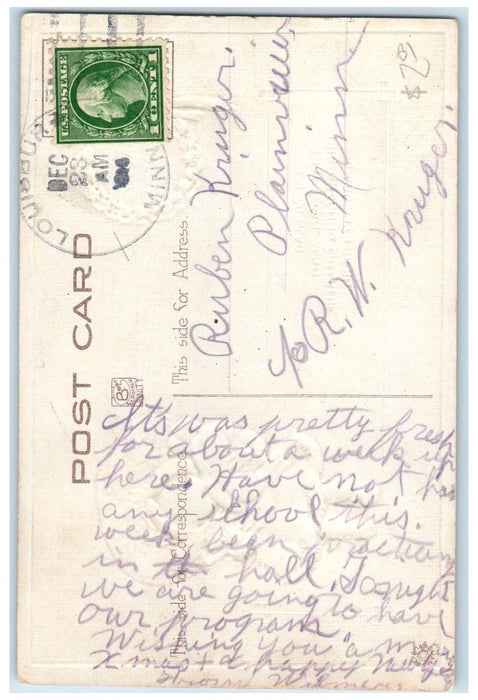 U.S. POSTAGE
1 CENT 1
LOUISBURG
DEC
23
AM
MINN
POST CARD
This side for Address.
This side for Correspondence
$ 2
Ruben Kruger.
Plainview,
Minn
c/o R. W. Kruger.
Its was pretty fresh
for about a week up
here. Have not had
any school this.
week been practicing
in the hall. Tonight
we are going to have
our program
Wishing you a merry
Xmas + a happy New year
From Wilmer